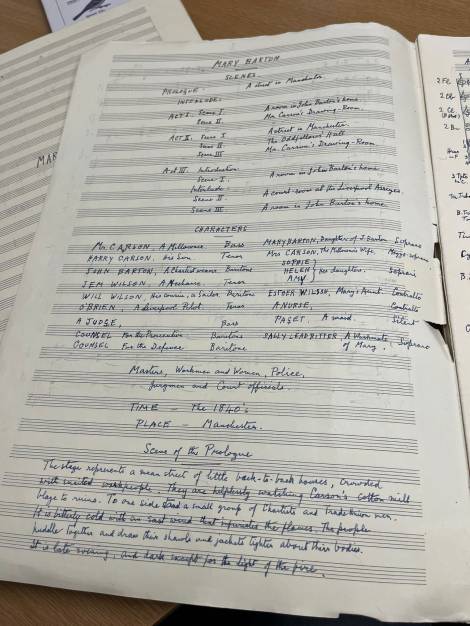 MARY BARTON
SCENES
PROLOGUE A street in Manchester
INTERLUDE.
ACT I. Scene I A room in John Barton's home.
Scene II. Mr. Carson's Drawing-Room.
ACT II. Scene I A street in Manchester.
Scene II The Oddfellows' Hall
Scene III Mr. Carson's Drawing-Room.
Act III. Introduction.
Scene I. A room in John Barton's home.
Interlude.
Scene II A court-room at the Liverpool Assizes.
Scene III A room in John Barton's home.
CHARACTERS
Mr. CARSON, A Millowner. Bass MARY BARTON, Daughter of J. Barton Soprano
HARRY CARSON, his Son Tenor Mrs CARSON, The Millowner's Wife, Mezzo-soprano
JOHN BARTON, A Chartist weaver Baritone SOPHIE
HELEN his daughters. Soprani
AMY
JEM WILSON, A Mechanic. Tenor
WILL WILSON, His cousin, a Sailor. Baritone ESTHER WILSON, Mary's Aunt. Contralto
O'BRIEN, A Liverpool Pilot. Tenor A NURSE, Contralto
A JUDGE, Bass PAGET. A maid. Silent
COUNSEL For the Prosecution Baritone SALLY LEADBITTER, A Workmate of Mary, Soprano
COUNSEL For the Defence Baritone
Masters, Workmen and Women, Police,
Jurymen and Court officials.
TIME — The 1840s
PLACE — Manchester.
Scene of the Prologue
The stage represents a mean street of little back-to-back houses, crowded
with excited workpeople. They are helplessly watching Carson's cotton mill
blaze to ruins. To one side stand a small group of Chartists and Trade Union men.
It is bitterly cold with an east wind that infuriates the flames. The people
huddle together and draw their shawls and jackets tighter about their bodies.
It is late evening, and dark except for the light of the fire.
MAR
2 Fl
2 Ob
2 Cl